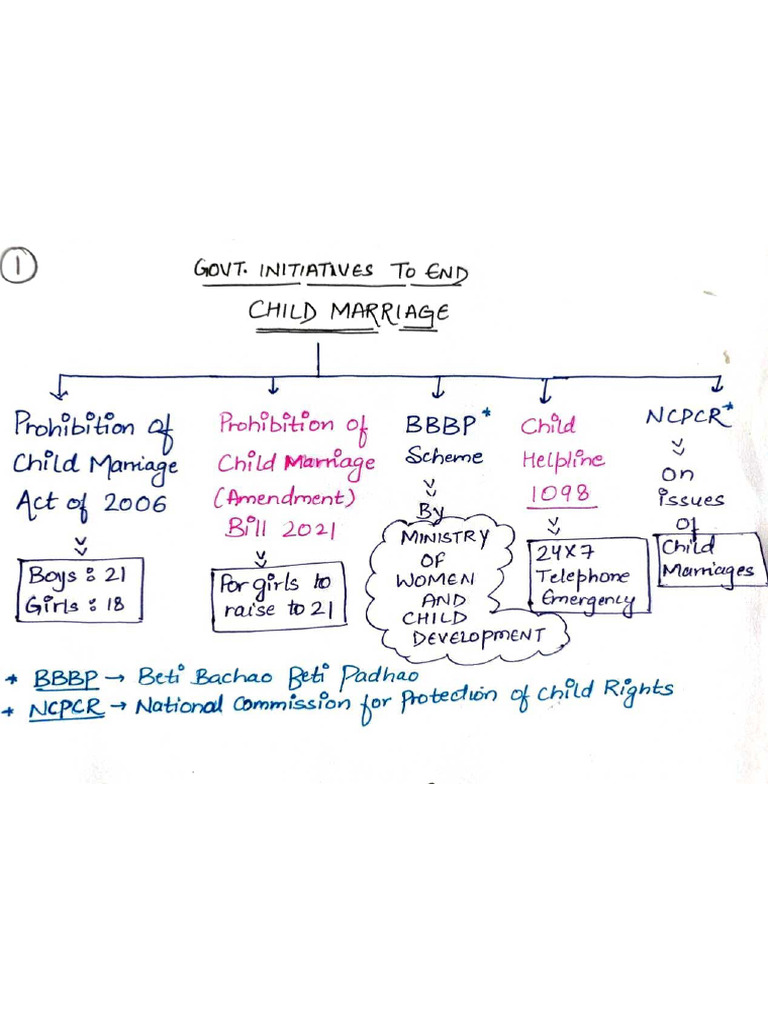 1
GOVT. INITIATIVES TO END
CHILD MARRIAGE
Prohibition of
Child Marriage
Act of 2006
Boys : 21
Girls : 18
Prohibition of
Child Marriage
(Amendment)
Bill 2021
For girls to
raise to 21
BBBP *
Scheme
By
MINISTRY
OF
WOMEN
AND
CHILD
DEVELOPMENT
Child
Helpline
1098
24X7
Telephone
Emergency
NCPCR *
on
issues
of
Child
Marriages
* BBBP → Beti Bachao Beti Padhao
* NCPCR → National Commission for Protection of Child Rights